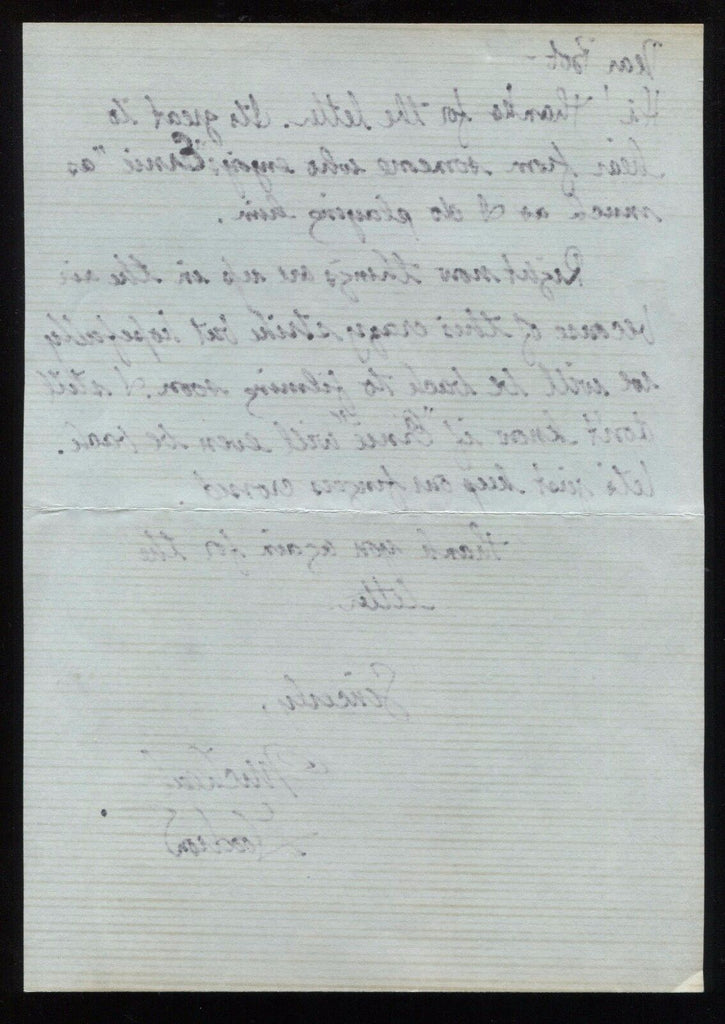 Dear Bob -
Hi! Thanks for the letter. Its great to
hear from someone who enjoys "Ernie" as
much as I do playing him.
Right now things are up in the air
because of this crazy strike but hopefully
we will be back to filming soon. I still
don't know if "Ernie" will even be back.
Let's just keep our fingers crossed.
Thank you again for the
letter
Sincerely,
Jackson